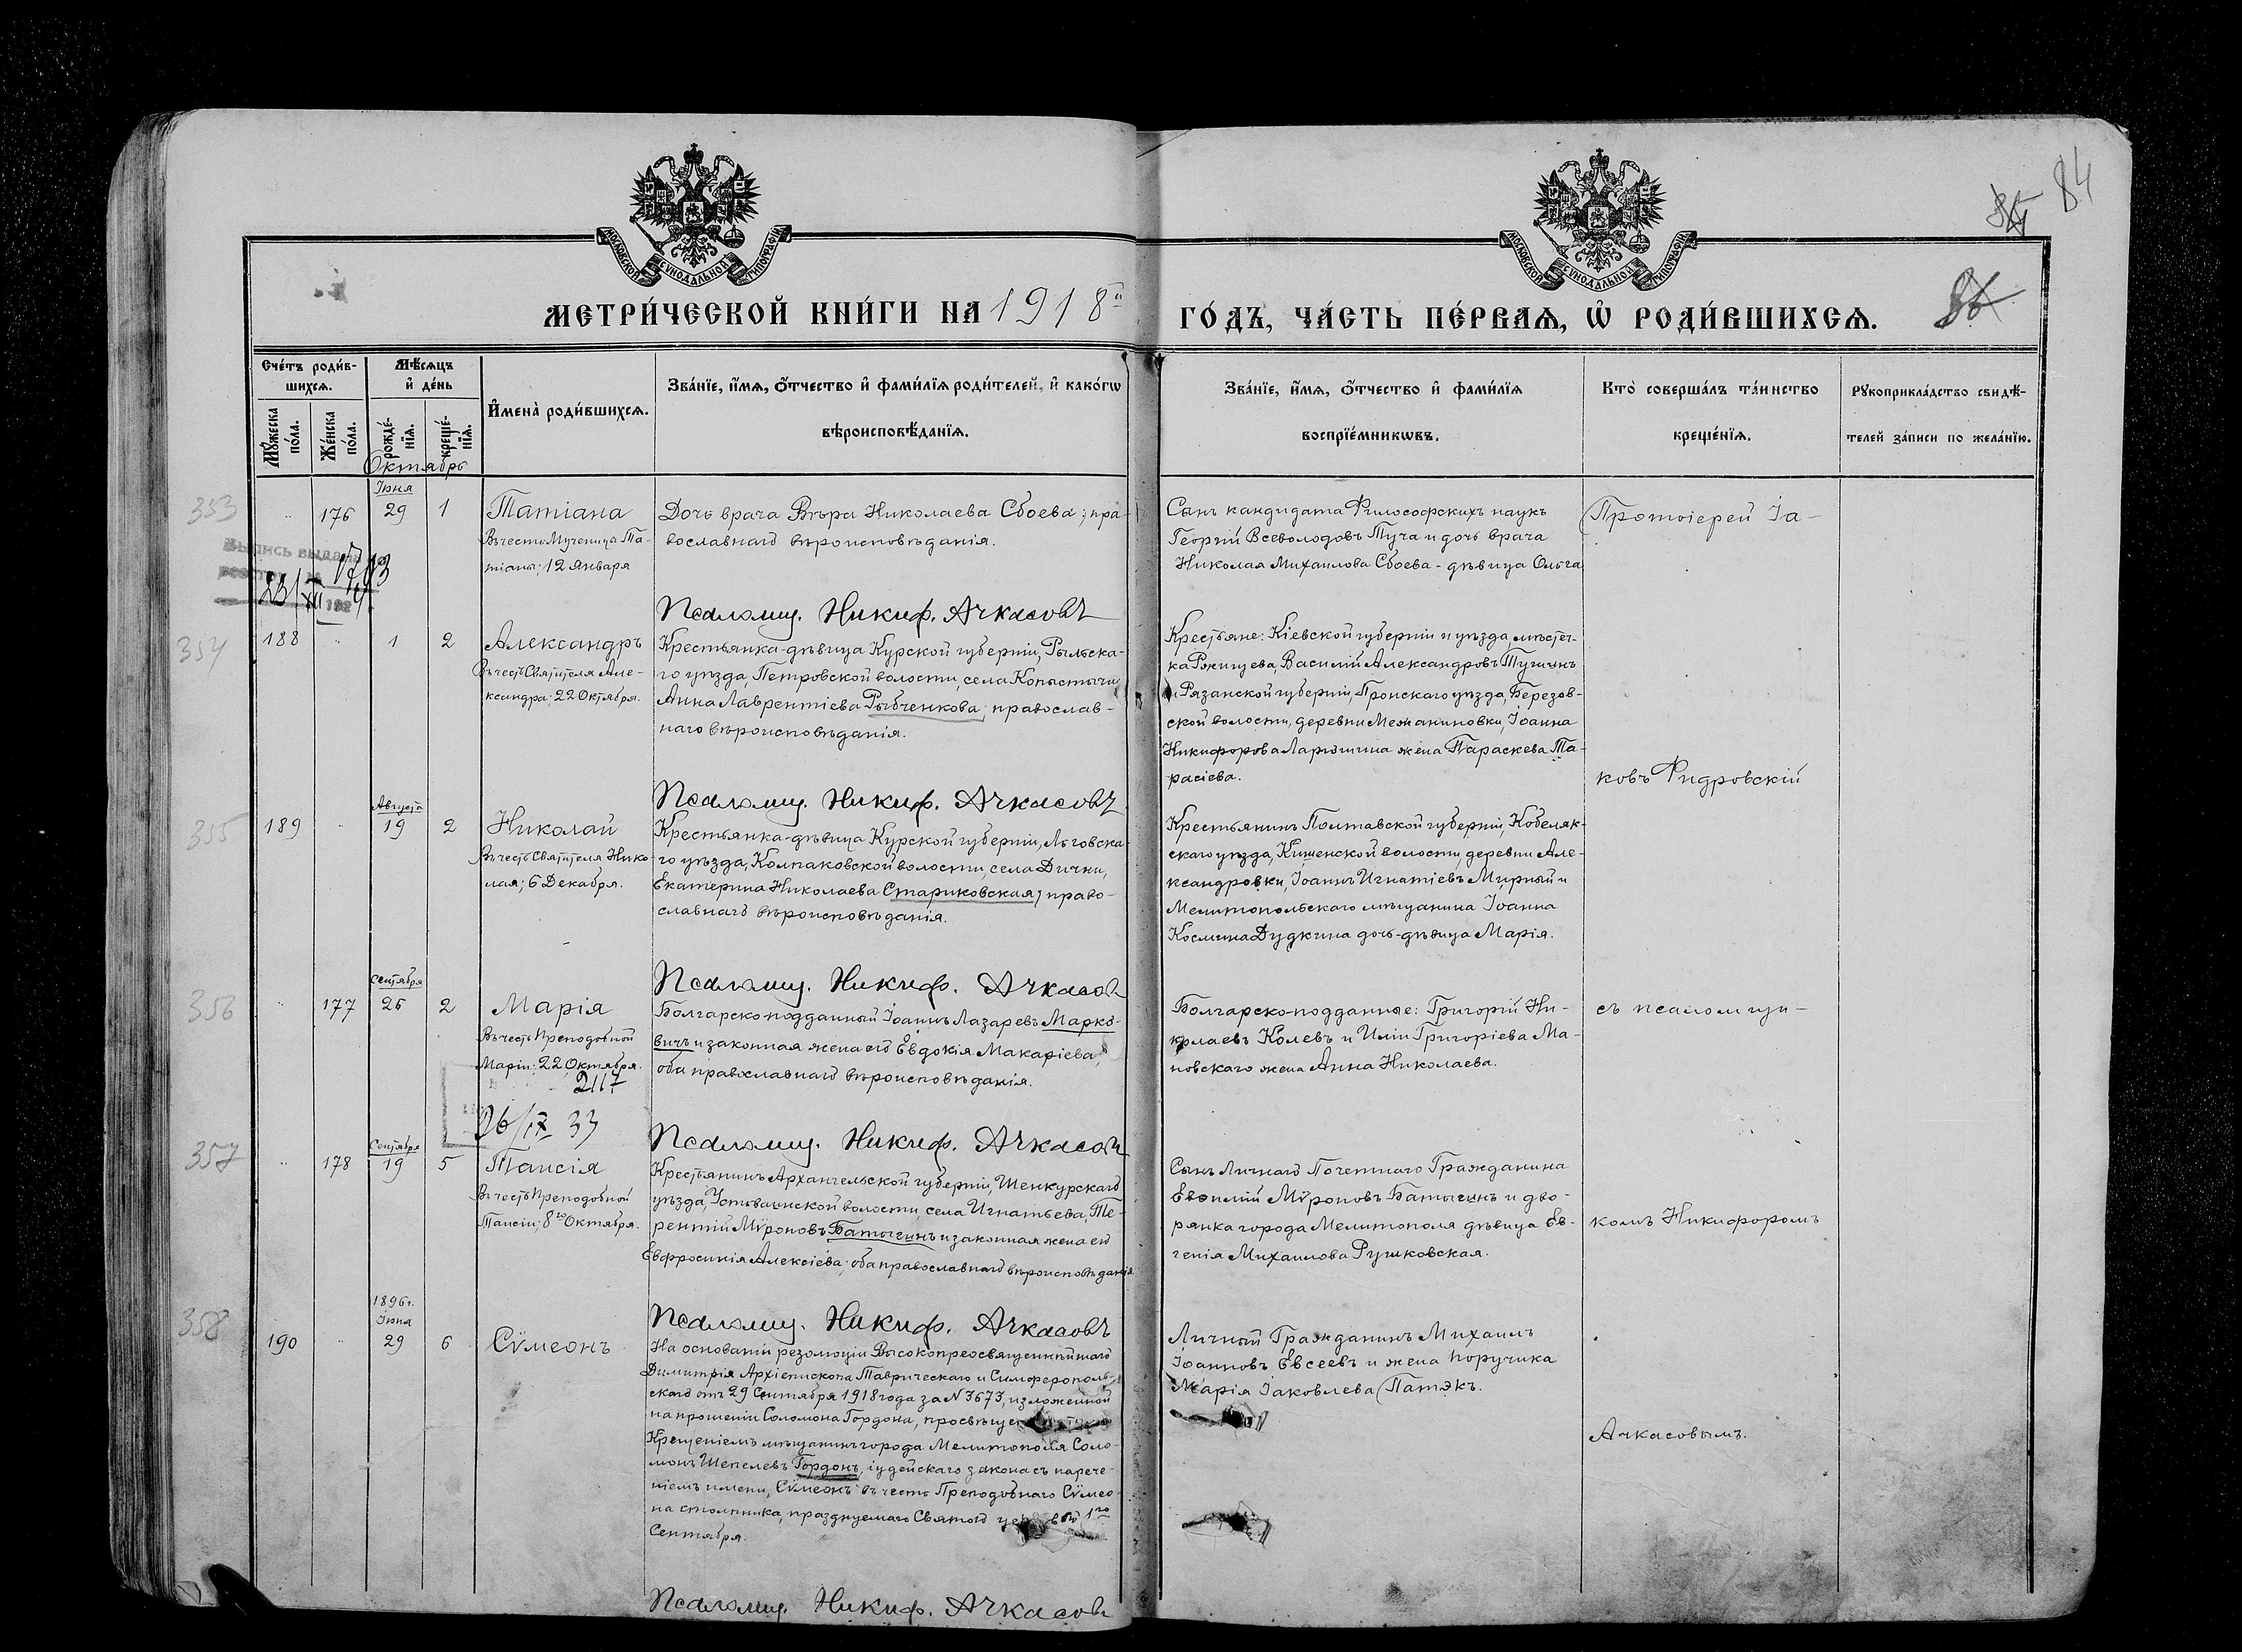 84
МОСКОВСКОЙ СУНОДАЛЬНОЙ ТИПОГРАФІИ
МОСКОВСКОЙ СУНОДАЛЬНОЙ ТИПОГРАФІИ
МЕТРИ́ЧЕСКОЙ КНИ́ГИ НА 1918
ГО́ДЪ, ЧА́СТЬ ПЕ́РВАѦ, Ѡ҆ РОДИ́ВШИХСѦ.
Сче́тъ роди́в-
шихсѧ.
Мꙋ́жеска по́ла.
Же́нска по́ла.
Мѣ́сѧцъ
и҆ де́нь
рожде́-
нїѧ.
креще́-
нїѧ.
И҆мена̀ роди́вшихсѧ.
Зва́нїе, и҆́мѧ, ѻ҆́тчество и҆ фами́лїѧ роди́телей, и҆ како́гѡ
вѣроисповѣ́данїѧ.
Зва́нїе, и҆́мѧ, ѻ҆́тчество и҆ фами́лїѧ
воспрїе́мникѡвъ.
Кто̀ соверша́лъ та́инство
креще́нїѧ.
Рꙋкоприкла́дство свидѣ́-
телей за́писи по жела́нїю.
Октябрь
353
176
Іюня
29
1
Татіана
Въ честь Мученицы Та-
тіаны; 12 Января
Дочь врача Вѣра Николаева Сбоева; пра-
вославнаго вѣроисповѣданія.
Сынъ кандидата Философскихъ наукъ
Георгій Всеволодовъ Туча и дочь врача
Николая Михаилова Сбоева - дѣвица Ольга
Протоіерей Іа-
Выпись выдана
Псаломщ. Никиф. Ачкасовъ
354
188
1
2
Александръ
Въ честь Святителя Але-
ксандра; 22 Октября.
Крестьянка-дѣвица Курской губерніи, Рыльска-
го уѣзда, Петровской волости, села Копыстычи,
Анна Лаврентіева Рыбченкова; православ-
наго вѣроисповѣданія.
Крестьяне: Кіевской губерніи и уѣзда, мѣстеч-
ка Ржищева, Василій Александровъ
и Рязанской губерніи, Пронскаго уѣзда, Березов-
ской волости, деревни Іоанна
Никифорова жена Параскева Та-
расіева.
ковъ Фидровскій
Псаломщ. Никиф. Ачкасовъ
355
189
Августа
19
2
Николай
Въ честь Святителя Нико-
лая; 6 Декабря.
Крестьянка-дѣвица Курской губерніи, Льговска-
го уѣзда, Колпаковской волости, села Дички,
Екатерина Николаева Стариковская; право-
славнаго вѣроисповѣданія.
Крестьянинъ Полтавской губерніи, Кобеляк-
скаго уѣзда, Кишенской волости, деревни Але-
ксандровки, Іоаннъ Игнатіевъ Мирный и
Мелитопольскаго мѣщанина Іоанна
Космина Дудкина дочь-дѣвица Марія.
Псаломщ. Никиф. Ачкасов
356
177
Сентября
25
2
Марія
Въ честь Преподобной
Маріи; 22 Октября.
2117
26/IX 33
Болгарско-подданный Іоаннъ Лазаревъ Марко-
вичъ и законная жена его Евдокія Макаріева,
оба православнаго вѣроисповѣданія.
Болгарско-подданные: Григорій Ни-
колаевъ Колевъ и Иліи Григоріева Ма-
новскаго жена Анна Николаева.
съ псаломщи-
Псаломщ. Никиф. Ачкасов
357
178
Сентября
19
5
Таисія
Въ честь Преподобной
Таисіи; 8го Октября.
Крестьянинъ Архангельской губерніи, Шенкурскаго
уѣзда, Устьважнской волости, села Игнатьева, Те-
рентій Мѵроновъ Батыгинъ и законная жена его
Евфросинія Алексіева; оба православнаго вѣроисповѣданія.
Сынъ Личнаго Почетнаго Гражданина
Мѵроновъ Батыгинъ и дво-
рянка города Мелитополя дѣвица Ев-
генія Михаилова Ручковская.
комъ Никифоромъ
Псаломщ. Никиф. Ачкасовъ
358
190
1896 г.
Іюня
29
6
Сѵмеонъ
На основаніи резолюціи Высокопреосвященнѣйшаго
Димитрія Архіепископа Таврическаго и Симферополь-
скаго отъ 29 Сентября 1918 года за N 3673, изложенной
на прошеніи Соломона Гордона,
Крещеніемъ мѣщанинъ города Мелитополя Соло-
монъ Шепелевъ Гордонъ, іудейскаго закона съ нарече-
ніемъ имени, Сѵмеонъ въ честь Преподобнаго Сѵмео-
на столпника, празднуемаго Святой церковью 1го
Сентября.
Личный Гражданинъ Михаилъ
Іоанновъ Евсеевъ и жена поручика
Марія Іаковлева Патэкъ.
Ачкасовымъ.
Псаломщ. Никиф. Ачкасовъ